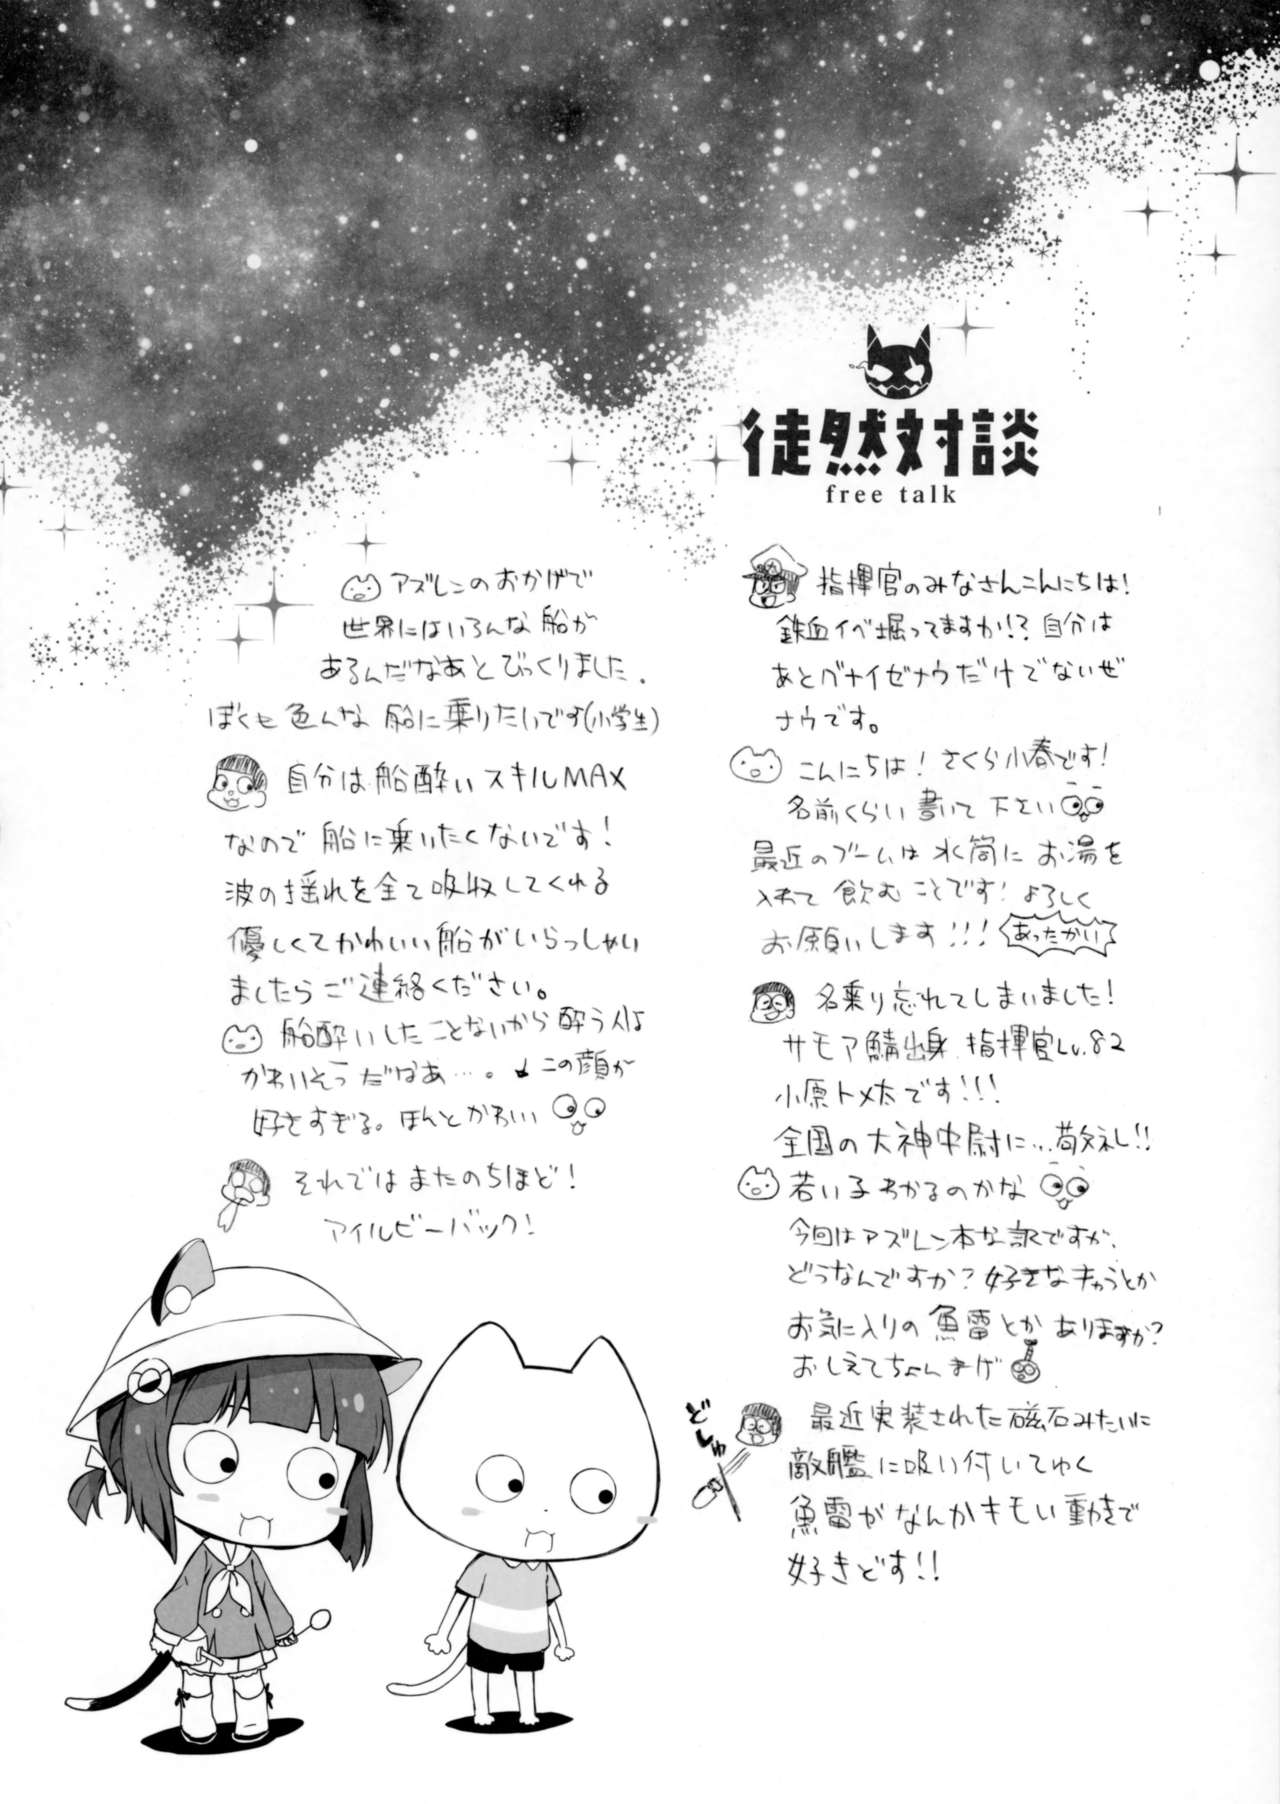 徒然対談
free talk
指揮官のみなさんこんにちは!
鉄血イベ堀ってますか!?自分は
あとグナイゼナウだけでないぜ
ナウです。
こんにちは!さくら小春です!
名前くらい書いて下さい
最近のブームは水筒にお湯を
入れて飲むことです!よろしく
お願いします!!!あったかい
名乗り忘れてしまいました!
サモア鯖出身 指揮官Lv.82
小原トメ太です!!!
全国の大神中尉に…敬礼!!
若い子わかるのかな
今回はアズレン本な訳ですが、
どうなんですか?好きなキャラとか
お気に入りの魚雷とかありますか?
おしえてちょんまげ
どしゅ
最近実装された磁石みたいに
敵艦に吸い付いてゆく
魚雷がなんかキモい動きで
好きどす!!
アズレンのおかげで
世界にはいろんな船が
あるんだなあとびっくりました.
ぼくも色んな船に乗りたいです(小学生)
自分は船酔いスキルMAX
なので船に乗りたくないです!
波の揺れを全て吸収してくれる
優しくてかわいい船がいらっしゃい
ましたらご連絡ください。
船酔いしたことないから酔う人は
かわいそうだなあ…。この顔が
好きすぎる。ほんとかわいい
それではまたのちほど!
アイルビーバック!